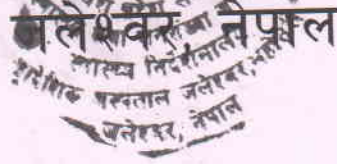 जलेश्वर, नेपाल
स्वास्थ्य निर्देशनालय
प्रादेशिक अस्पताल जलेश्वर,
जलेश्वर, नेपाल